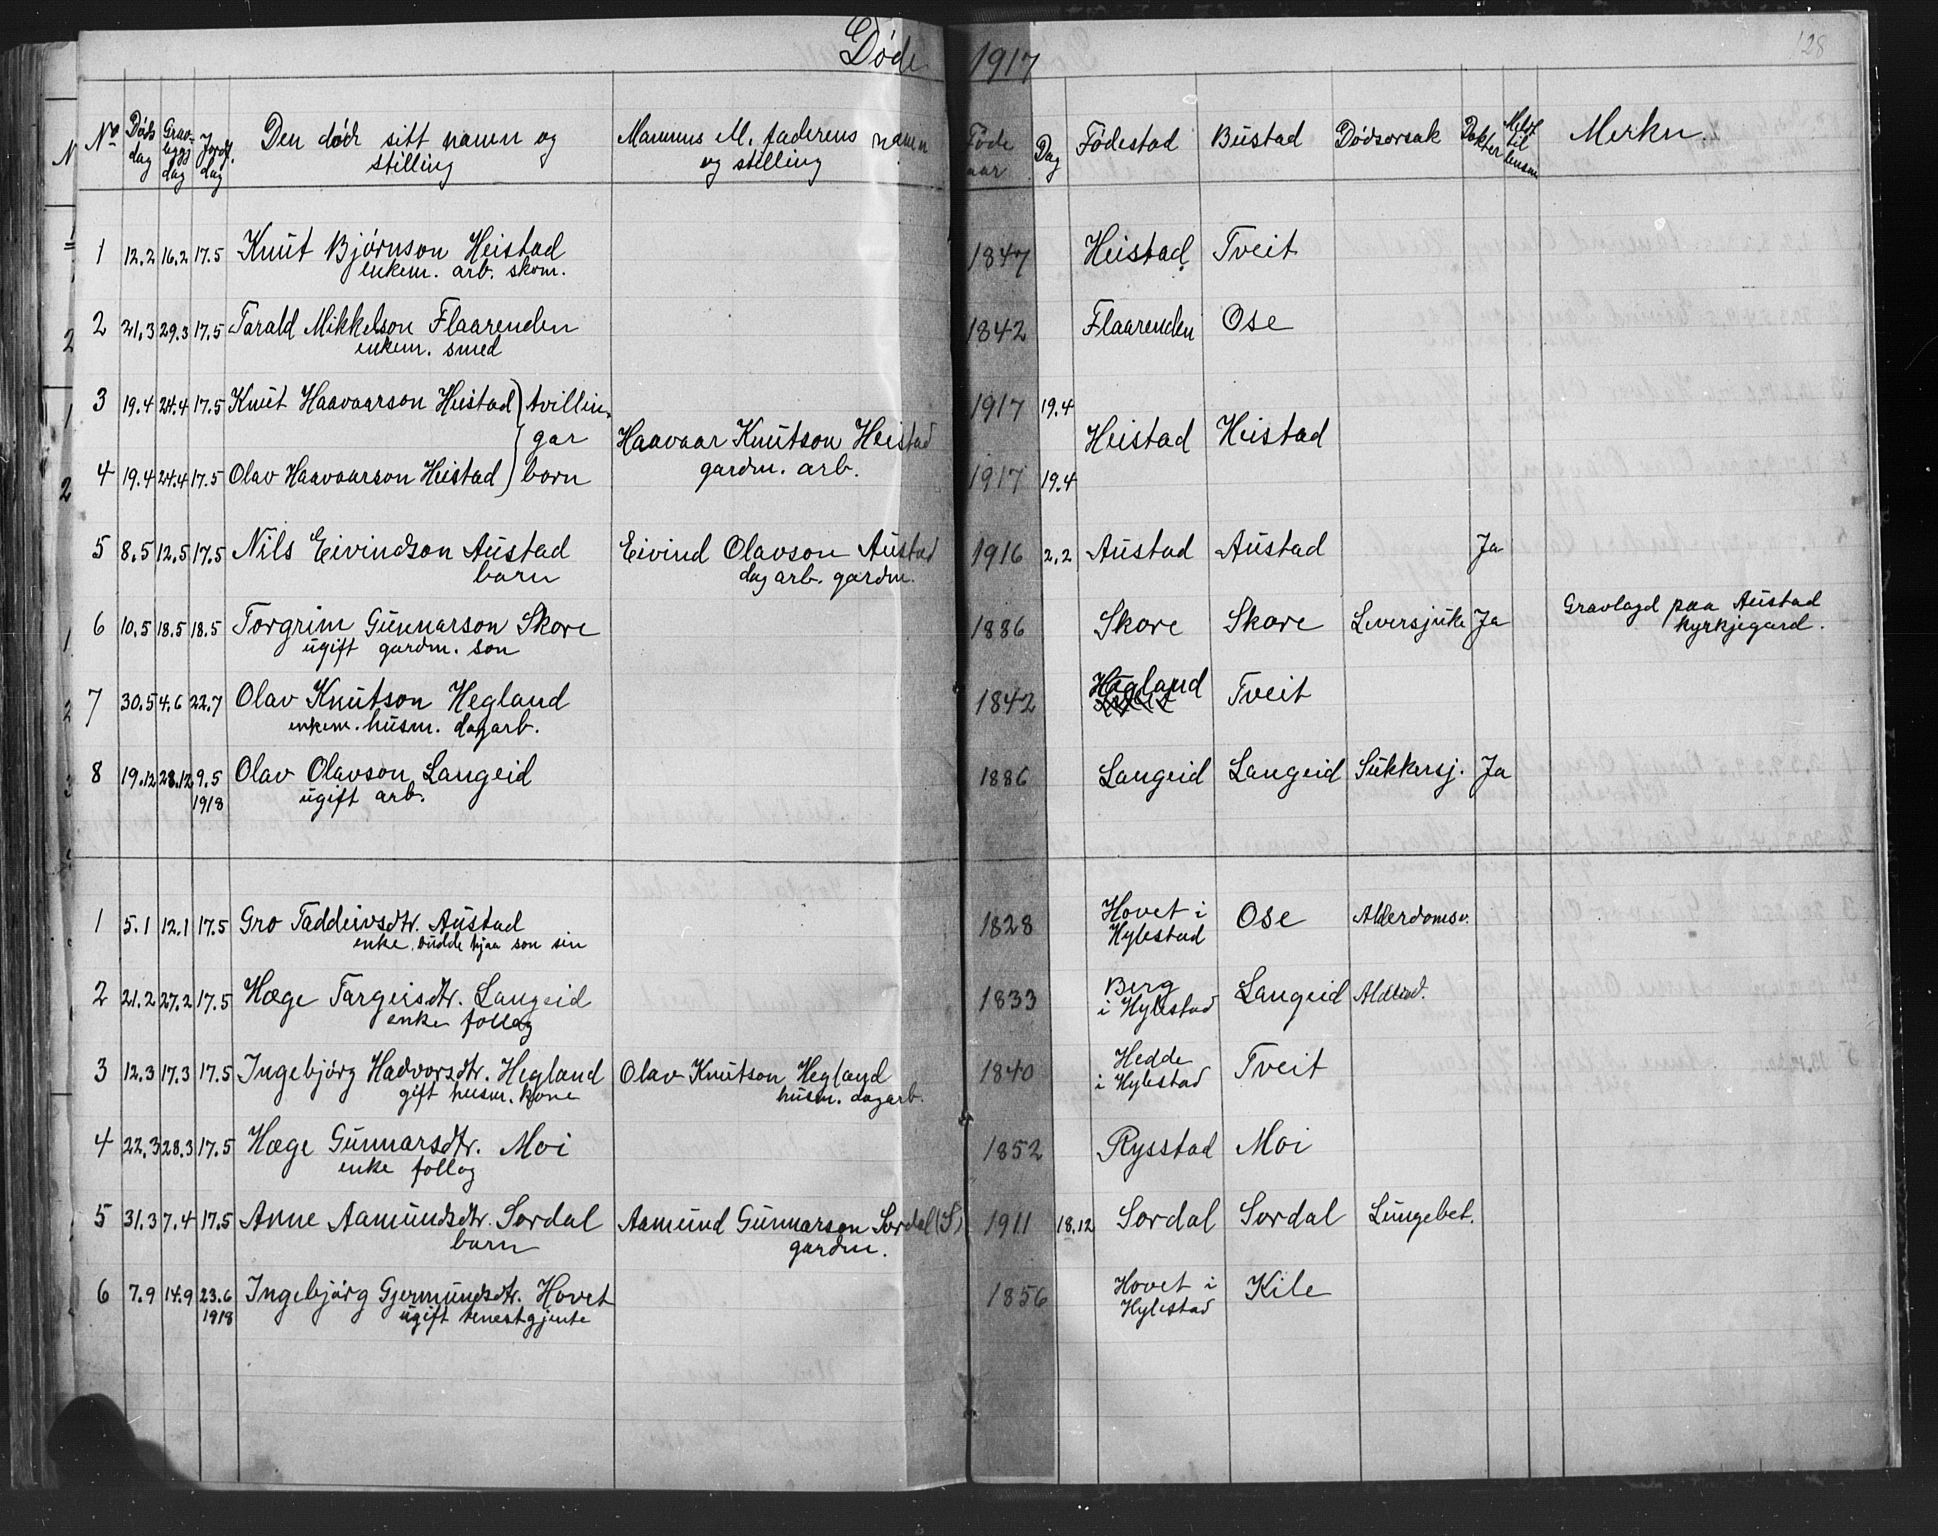 Døde 1917
128
No Døds dag Gravleggj dag Jordf. dag Den døde sitt namn og stilling Mannens M. faderens namn og stilling Føde aar Dag Fødestad Bustad Dødsorsak Dokter Meldt til lensm. Merkn.
1 12.2 16.2 17.5 Knut Bjørnson Heistad 1847 Heistad Tveit
enkem. arb. skom.
2 21.3 29.3 17.5 Tarald Mikkelson Flaarenden 1842 Flaarenden Ose
enkem. smed
3 19.4 24.4 17.5 Knut Haavaarson Heistad ) tvillin- 1917 19.4
gar Haavaar Knutson Heistad Heistad Heistad
gardm. arb.
4 19.4 24.4 17.5 Olav Haavaarson Heistad ) born 1917 19.4
5 8.5 12.5 17.5 Nils Eivindson Austad Eivind Olavson Austad 1916 2.2 Austad Austad Ja
barn dagarb. gardm.
6 10.5 18.5 18.5 Torgrim Gunnarson Skore 1886 Skore Skore Leversjuke Ja Gravlagd paa Austad
ugift gardm. son kyrkjegard.
7 30.5 4.6 22.7 Olav Knutson Hegland 1842 Hægland Tveit
enkem. husm. dagarb.
8 19.12 28.12 9.5 Olav Olavson Langeid 1886 Langeid Langeid Sukkersj. Ja
1918 ugift arb.
1 5.1 12.1 17.5 Gro Taddeivsdtr. Austad 1828 Hovet i Ose Alderdomsv.
enke, budde hjaa son sin Hylestad
2 21.2 27.2 17.5 Hæge Targeisdtr. Langeid 1833 Berg Langeid Alderd.
enke follog i Hylestad
3 12.3 17.3 17.5 Ingebjørg Hadvorsdtr. Hegland Olav Knutson Hegland 1840 Hedde Tveit
gift husm. kone husm. dagarb. i Hylestad
4 22.3 28.3 17.5 Hæge Gunnarsdtr. Moi 1852 Rysstad Moi
enke follog
5 31.3 7.4 17.5 Anne Aamundsdtr. Sordal Aamund Gunnarson Sordal (S) 1911 18.12 Sordal Sordal Lungebet.
barn gardm.
6 7.9 14.9 23.6 Ingebjørg Gjermundsdtr. Hovet 1856 Hovet i Kile
1918 ugift tenestgjente Hylestad